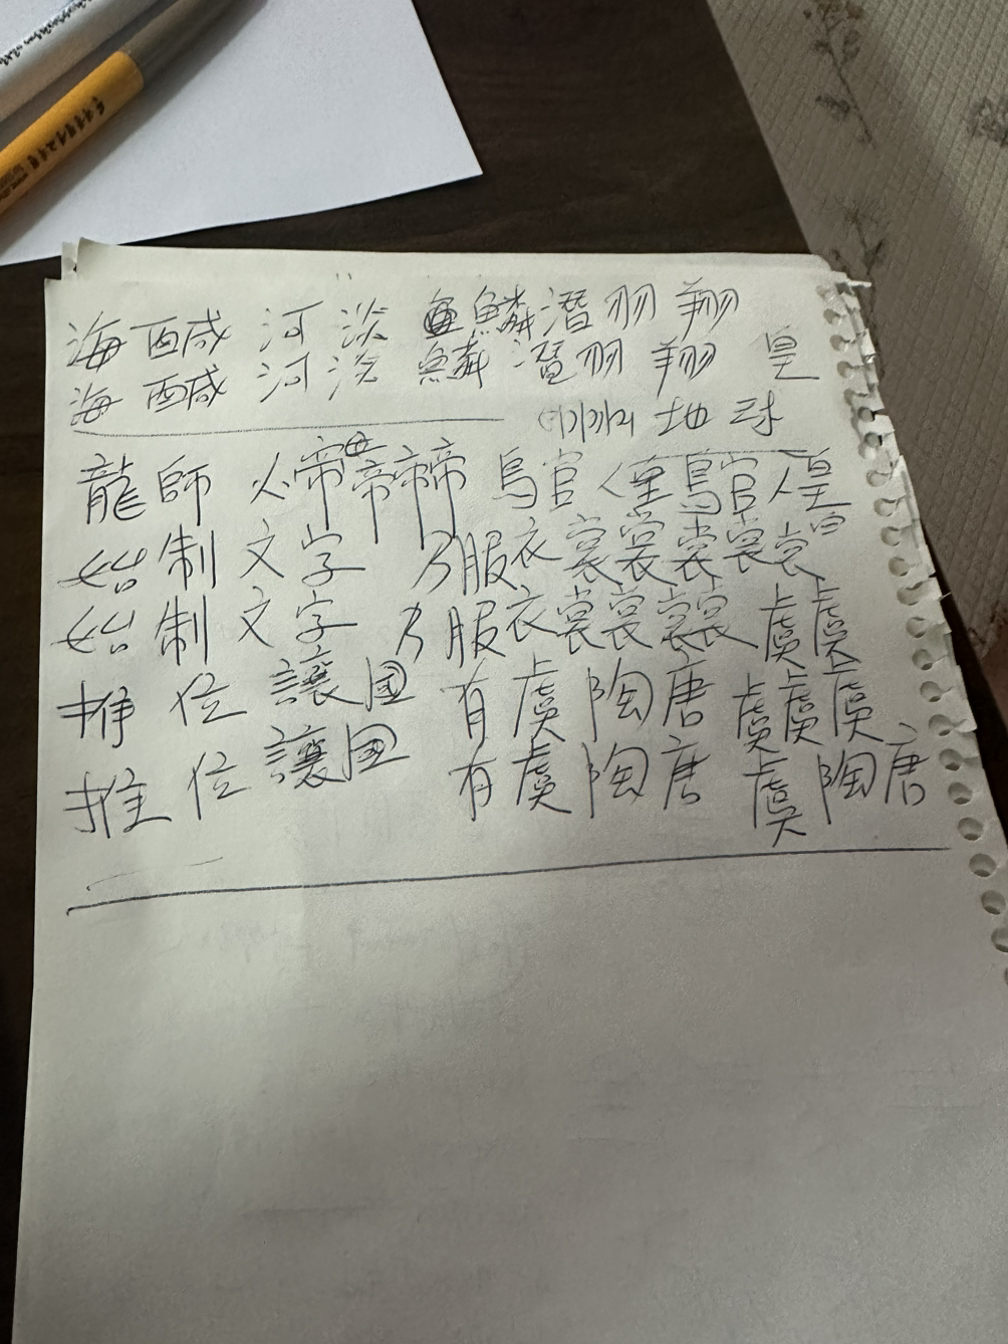 海 醎 河 淡 鱗 潛 羽 翔
海 醎 河 淡 鱗 潛 羽 翔 皇
地 球
龍 師 火 帝 帝 帝 帝 鳥 官 人 皇 鳥 官 人 皇
始 制 文 字 乃 服 衣 裳 裳 裳 裳 裳
始 制 文 字 乃 服 衣 裳 裳 裳 裳 虞 虞
推 位 讓 国 有 虞 陶 唐 虞 虞 虞
推 位 讓 国 有 虞 陶 唐 虞 陶 唐